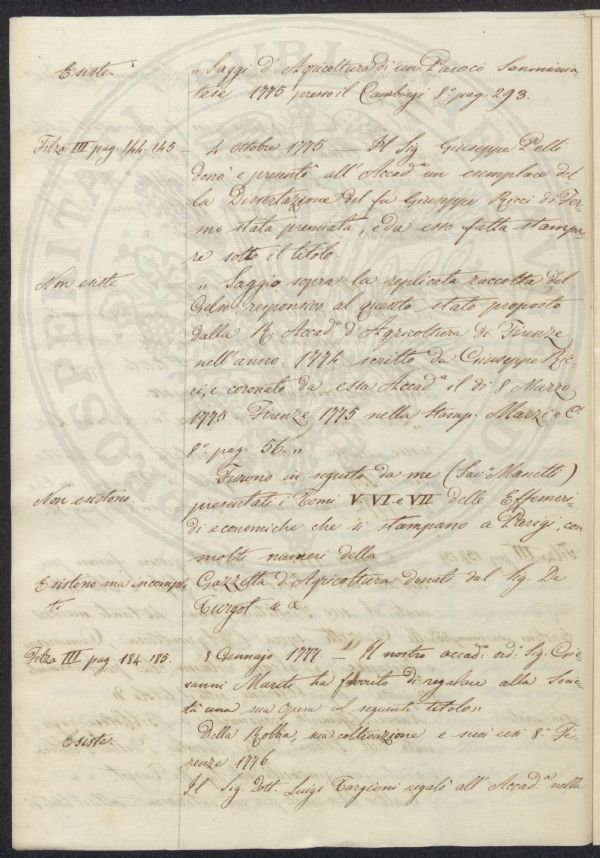 Esiste
„ Saggi d'Agricoltura di un Paroco Samminia-
tese 1775 presso il Cambiagi 8.° pag. 293.
Filza III pag. 144. 145
4 ottobre 1775 — Il Sig. Giuseppe Pelli
donò e presentò all'Accad.a un esemplare del
la Dissertazione del fu Giuseppe Ricci di Fer-
mo stata premiata, e da esso fatta stampa-
re sotto il titolo.
Non esiste
„ Saggio sopra la replicata raccolta del
Gelso responsivo al quesito stato proposto
dalla R. Accad.a d'Agricoltura di Firenze
nell'anno 1774 scritto da Giuseppe Ric-
ci, e coronato da essa Accad.a il di 8 Marzo
1775 Firenze 1775 nella Stamp. Marzi e C.i
8.° pag. 56. „
Furono in seguito da me (Sav.e Manetti)
Non esistono
presentati i Tomi V. VI e VII delle Effemeri-
di economiche che si stampano a Parigi, con
molti numeri della
Esistono ma incomple
ti
Gazzetta d'Agricoltura donati dal Sig. De
Turgot
Filza III pag. 184. 185.
8 Gennajo 1777. — Il nostro accad.o ord.o Sig. Gio-
vanni Mariti ha favorito di regalare alla Socie-
tà una sua Opera col seguente titolo „
Esiste
Della Robbia, sua coltivazione e suoi usi 8.° Fi-
renze 1776.
Il Sig. Dott. Luigi Targioni regalò all'Accad.a nella
PROSPERITATI